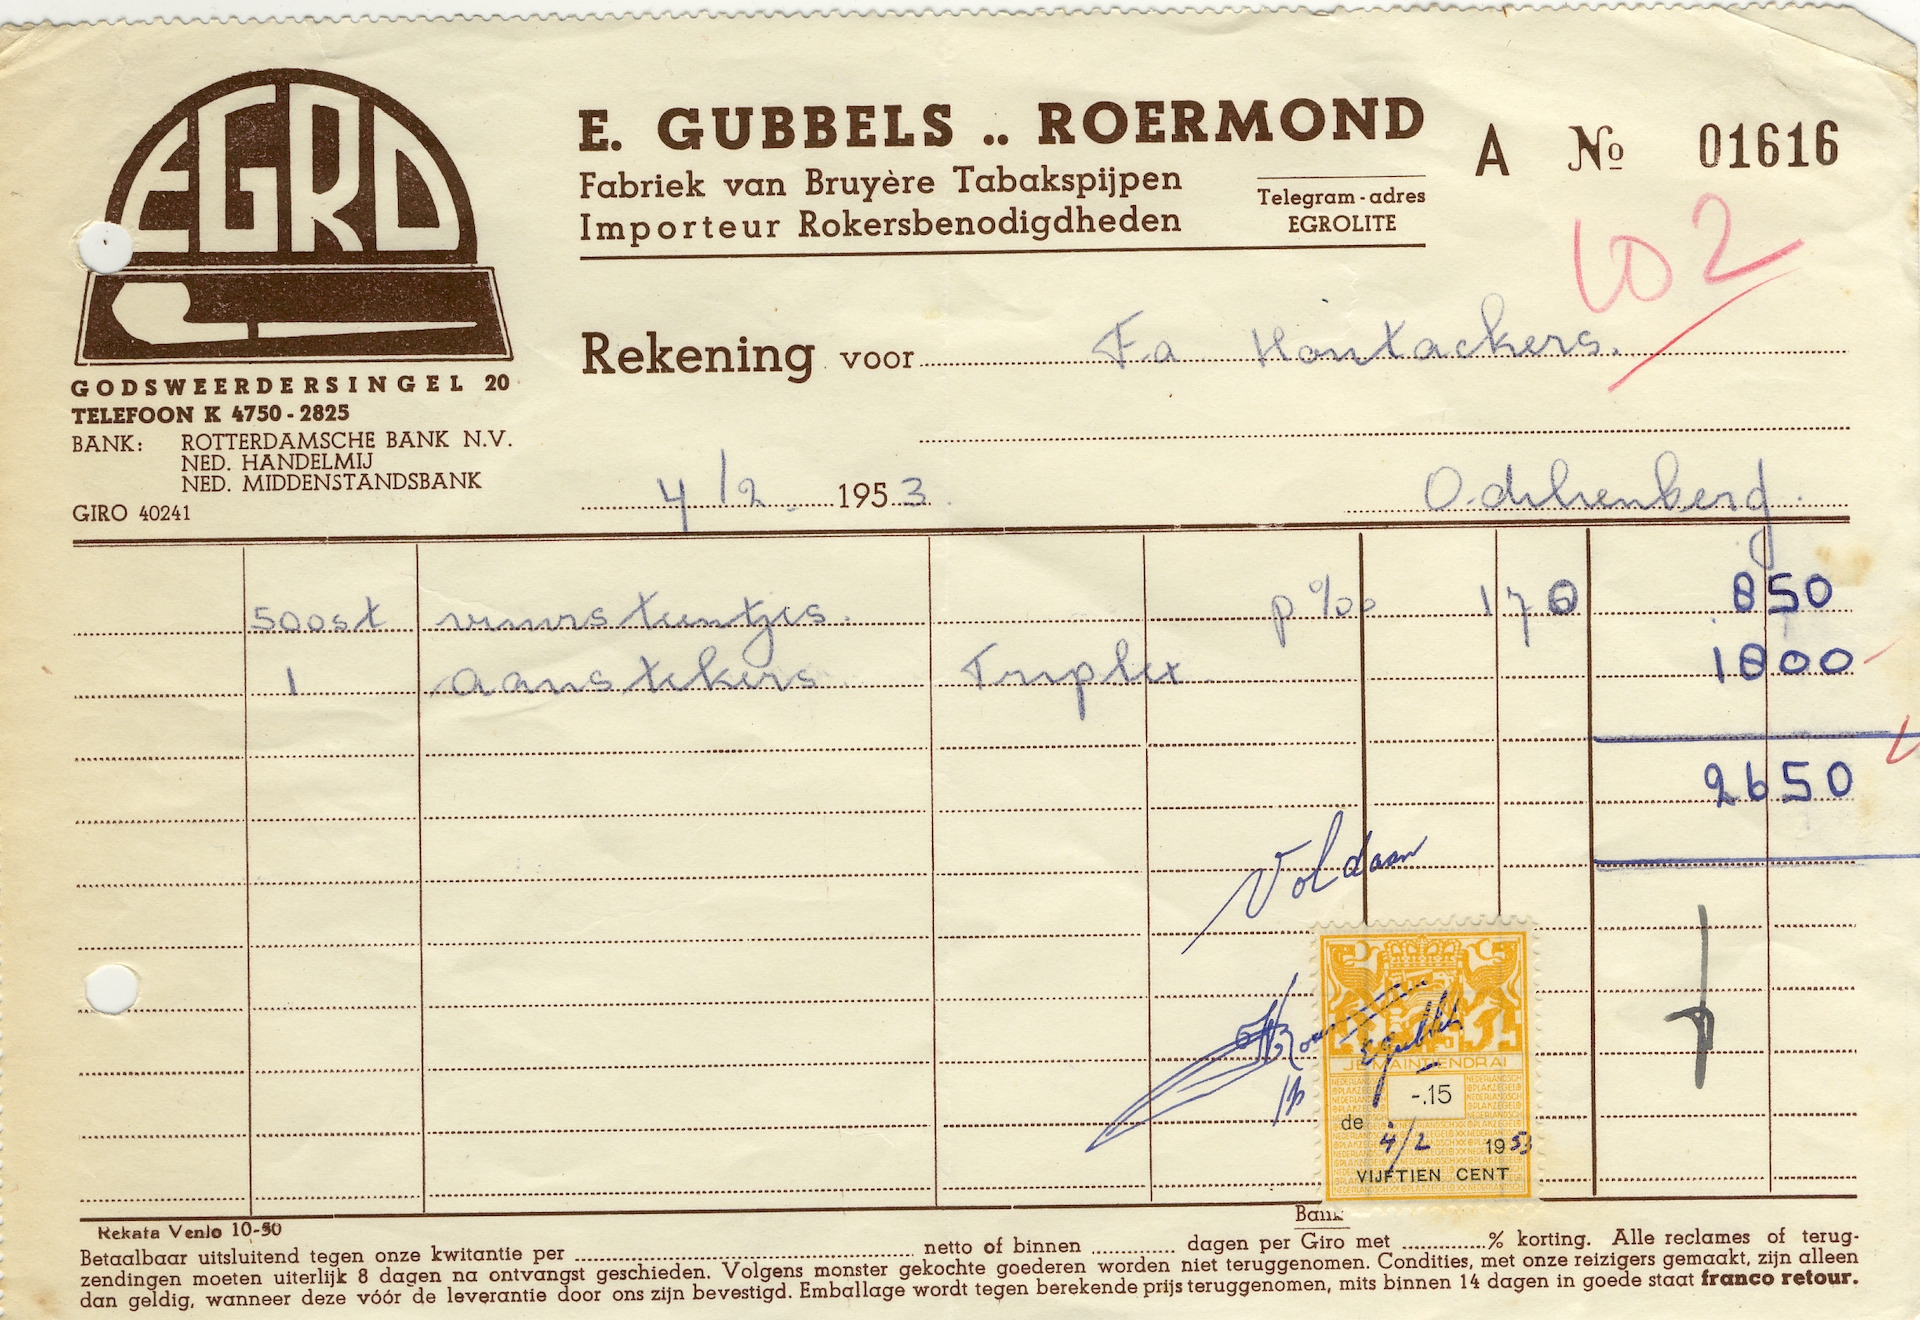 EGRO
E. GUBBELS .. ROERMOND
A No 01616
Fabriek van Bruyère Tabakspijpen
Importeur Rokersbenodigdheden
Telegram-adres
EGROLITE
102
Rekening voor Fa Hontackers.
GODSWEERDERSINGEL 20
TELEFOON K 4750-2825
BANK: ROTTERDAMSCHE BANK N.V.
NED. HANDELMIJ
NED. MIDDENSTANDSBANK
GIRO 40241
4/2 1953.
Odilienberg.
500st vuursteentjes. p ‰ 170 850
1 aanstekers Triplex. 1800
2650
Voldaan
E Gubbels
JE MAINTIENDRAI
-.15
de 4/2 1953
VIJFTIEN CENT
Rekata Venlo 10-50
Bank
Betaalbaar uitsluitend tegen onze kwitantie per ........ netto of binnen ........ dagen per Giro met ........% korting. Alle reclames of terug-
zendingen moeten uiterlijk 8 dagen na ontvangst geschieden. Volgens monster gekochte goederen worden niet teruggenomen. Condities, met onze reizigers gemaakt, zijn alleen
dan geldig, wanneer deze vóór de leverantie door ons zijn bevestigd. Emballage wordt tegen berekende prijs teruggenomen, mits binnen 14 dagen in goede staat franco retour.